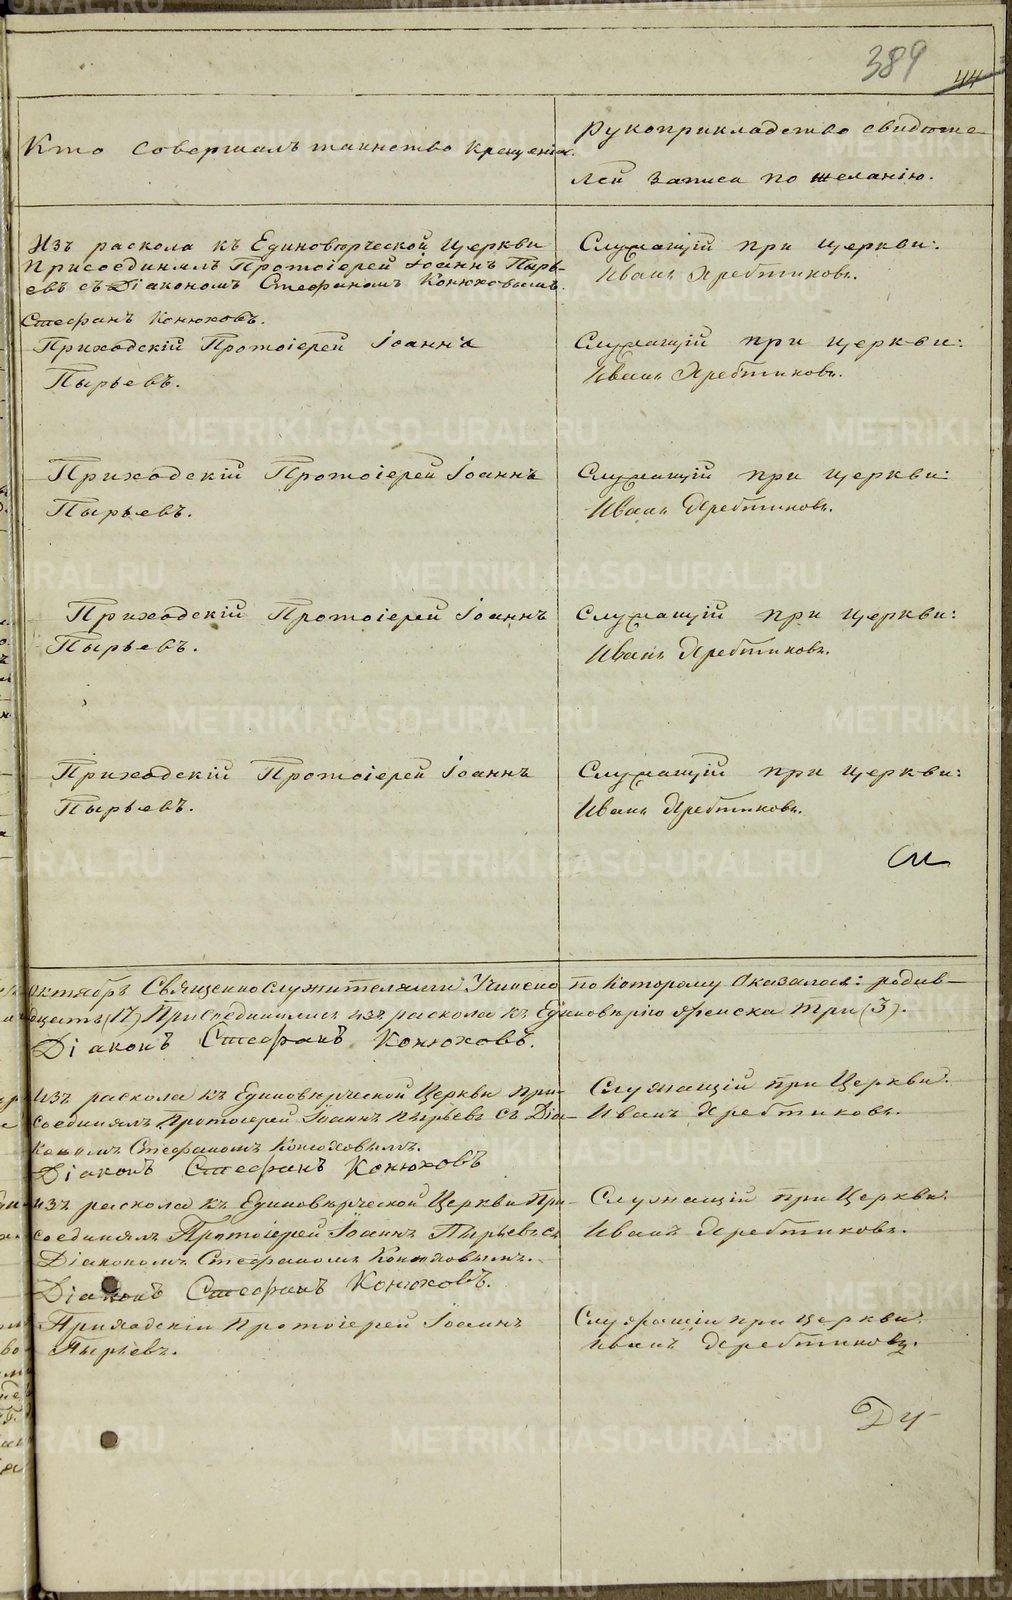 389
44
Кто совершалъ таинство крещенія.
Рукоприкладство свидѣте
лей записа по желанію.
Изъ раскола къ Единовѣрческой церкви
Присоединялъ Протоіерей Іоаннъ Пырь-
евъ съ Діакономъ Стефаномъ Конюховымъ.
Стефанъ Конюховъ.
Служащій при церкви:
Иванъ Жребтиковъ.
Приходскій Протоіерей Іоаннъ
Пырьевъ.
Служащій при церкви:
Иванъ Жребтиковъ.
Приходскій Протоіерей Іоаннъ
Пырьевъ.
Служащій при церкви:
Иванъ Жребтиковъ.
Приходскій Протоіерей Іоаннъ
Пырьевъ.
Служащій при церкви:
Иванъ Жребтиковъ.
Приходскій Протоіерей Іоаннъ
Пырьевъ.
Служащій при церкви:
Иванъ Жребтиковъ.
октябрь Священнослужителями Учинено по Которому Оказалось: родив-
дцать (17) Присоединились изъ раскола къ Единовѣрію женска три (3).
Діаконъ Стефанъ Конюховъ.
изъ раскола къ Единовѣрческой Церкви при-
соединялъ Протоіерей Іоаннъ Пырьевъ съ Діа-
кономъ Стефаномъ Конюховымъ.
Діаконъ Стефанъ Конюховъ
Служащій при Церкви:
Иванъ Жребтиковъ.
изъ раскола къ Единовѣрческой Церкви При-
соединялъ Протоіерей Іоаннъ Пырьевъ съ
Діакономъ Стефаномъ Конюховымъ.
Діаконъ Стефанъ Конюховъ.
Служащій при Церкви:
Иванъ Жребтиковъ.
Приходскій Протоіерей Іоаннъ
Пырьевъ.
Служащій при церкви:
Иванъ Жребтиковъ.
METRIKI.GASO-URAL.RU